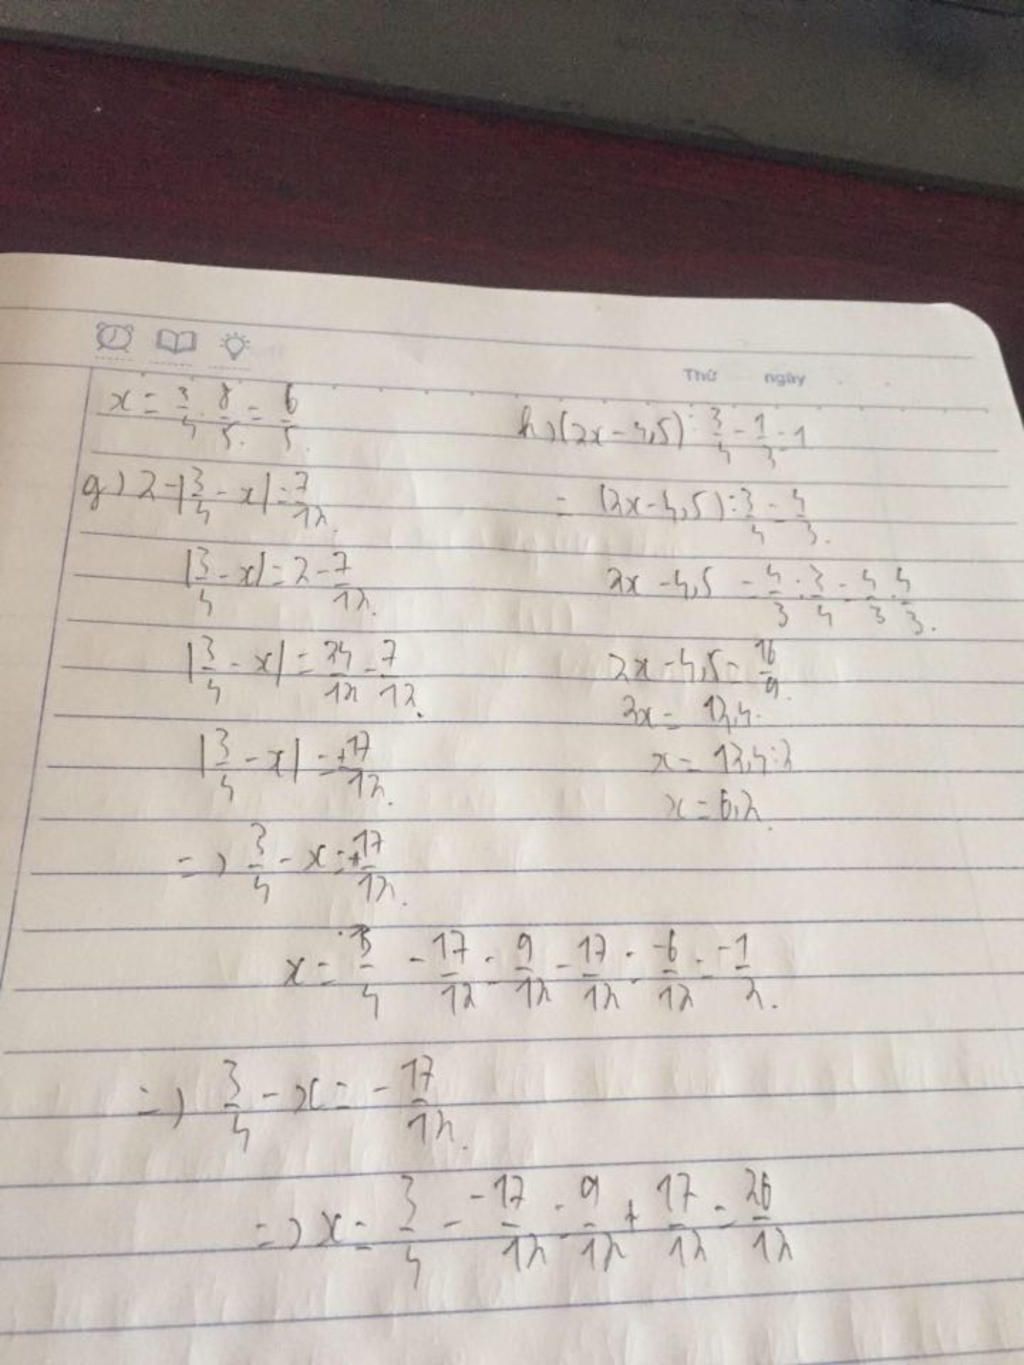 Thứ ngày
x = 3/4 . 8/5 = 6/5
g) 2 - |3/4 - x| = 7/12
|3/4 - x| = 2 - 7/12
|3/4 - x| = 24/12 - 7/12
|3/4 - x| = ±17/12
=> 3/4 - x = +17/12
x = 3/4 - 17/12 = 9/12 - 17/12 = -6/12 = -1/2
=> 3/4 - x = -17/12
=> x = 3/4 - -17/12 = 9/12 + 17/12 = 26/12
h) (2x - 4,5) : 3/4 - 1/3 = 1
= (2x - 4,5) : 3/4 = 4/3
2x - 4,5 = 4/3 : 3/4 = 4/3 . 4/3
2x - 4,5 = 16/9
2x = 12,4
x = 12,4 : 2
x = 6,2